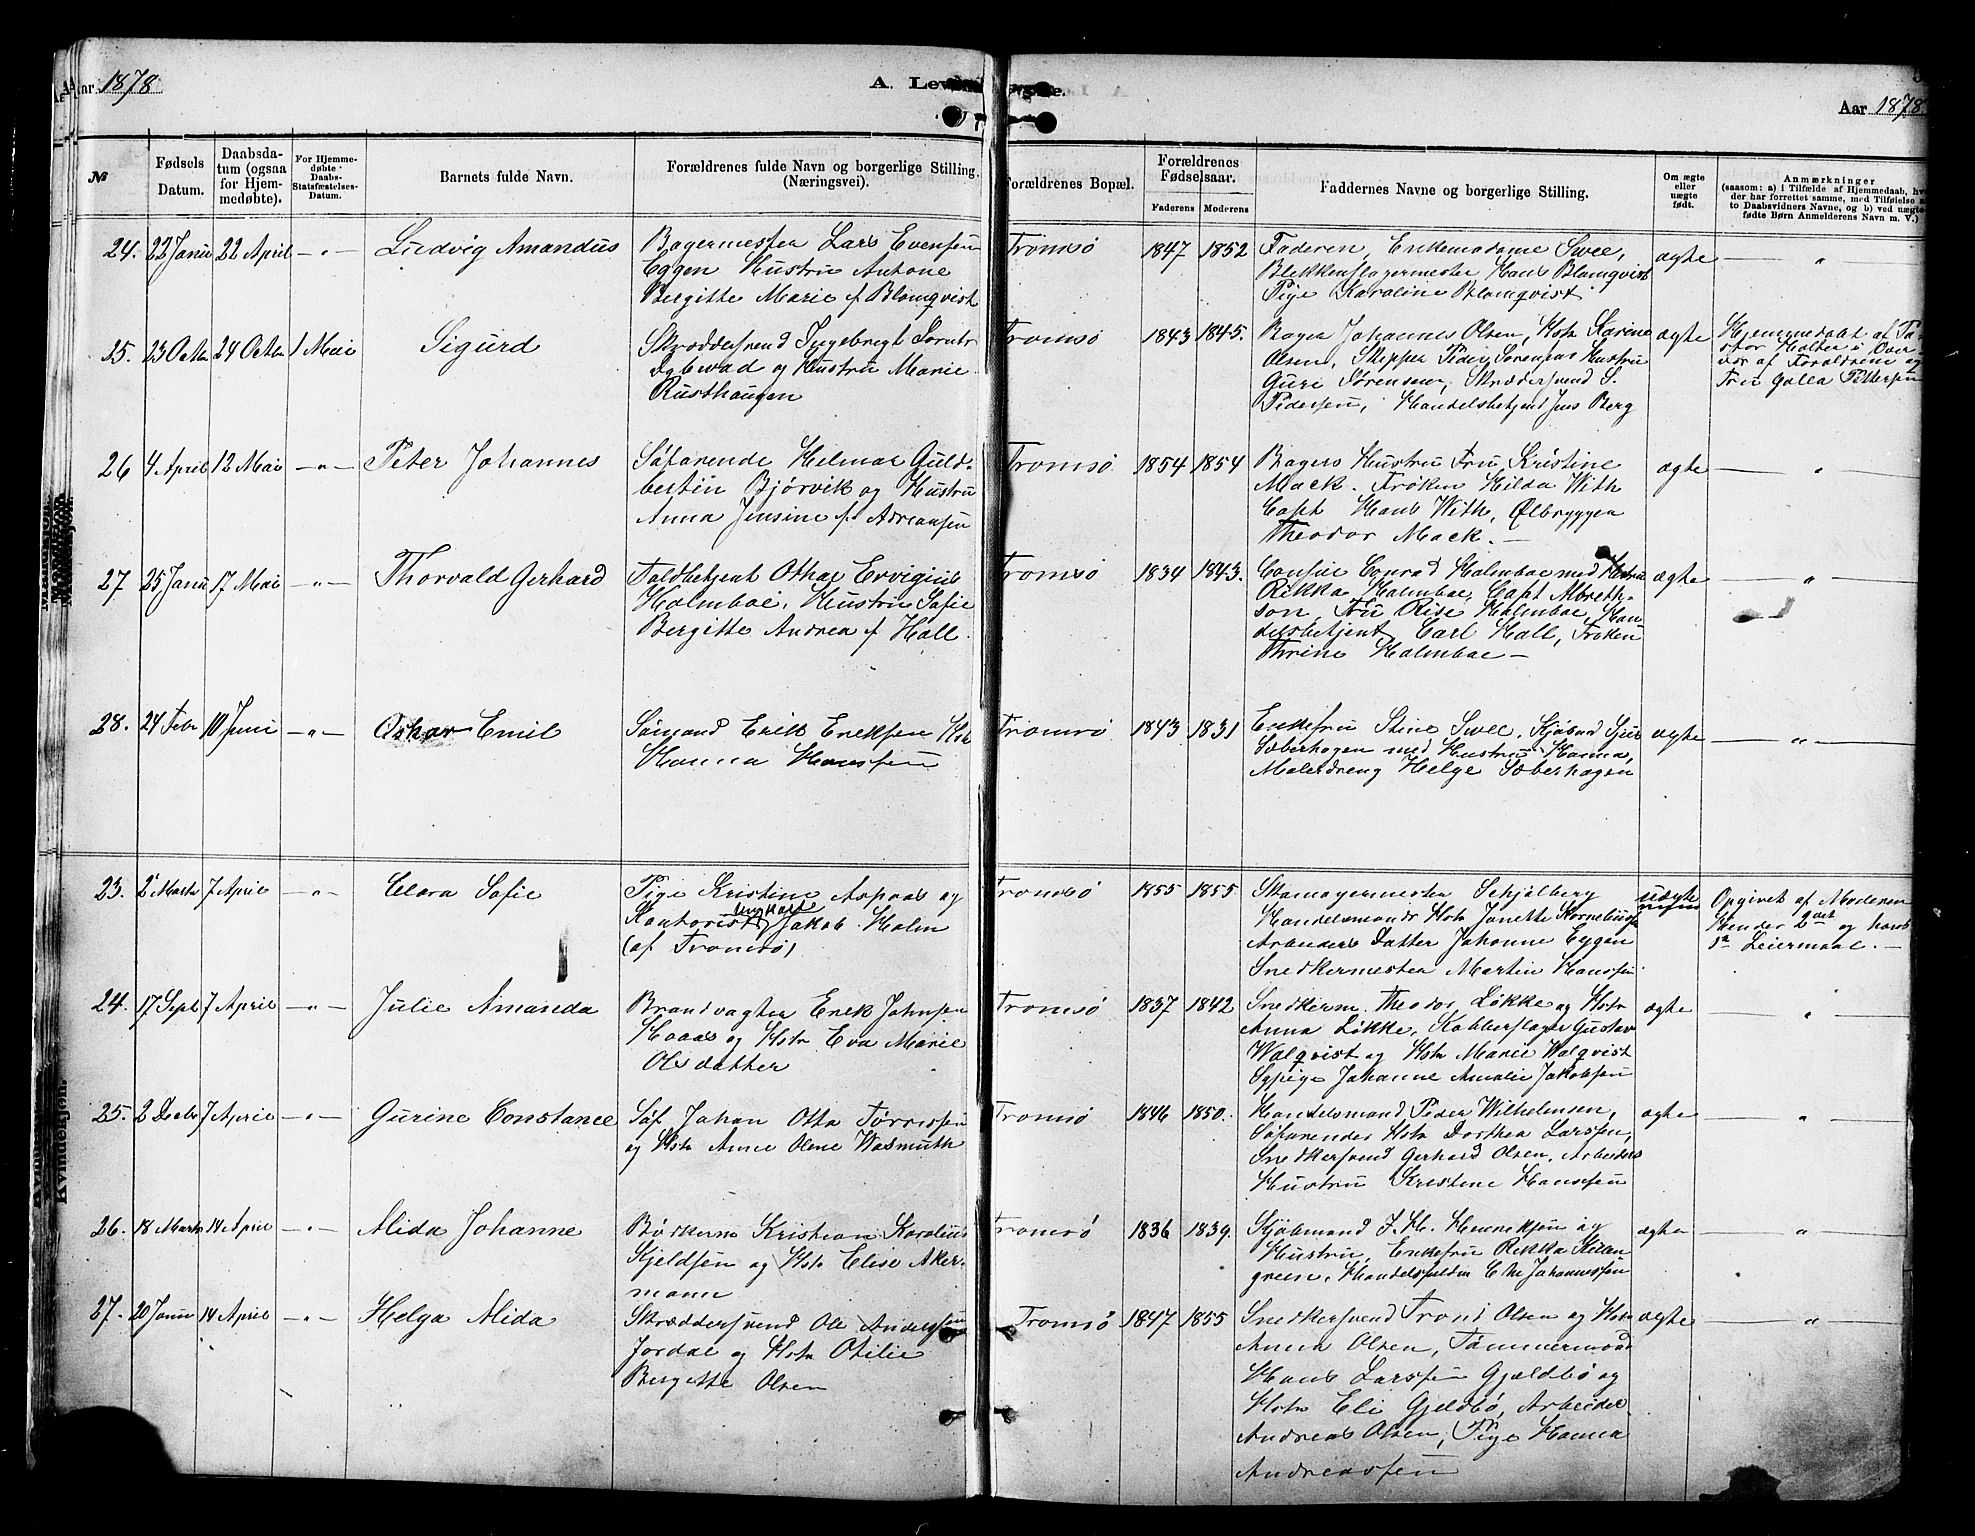 Aar 1878
A. Lev
Aar 1878
№
Fødsels Datum.
Daabsdatum (ogsaa for Hjemmedøbte).
For Hjemmedøbte Daabs-Statsfæstelses-Datum.
Barnets fulde Navn.
Forældrenes fulde Navn og borgerlige Stilling. (Næringsvei).
Forældrenes Bopæl.
Forældrenes Fødselsaar.
Faderens
Moderens
Faddernes Navne og borgerlige Stilling.
Om ægte eller uægte født.
Anmærkninger
(saasom: a) i Tilfælde af Hjemmedaab, hv
der har forrettet samme, med Tilføielse a
to Daabsvidners Navne, og b) ved uægte
fødte Børn Anmelderens Navn m. V.)
24. 22 Janu 22 April -"- Ludvig Amandus
Bagermester Lars Evensen
Eggen Hustru Antone
Bergitte Marie f Blomqvist
Tromsø 1847 1852
Faderen, Enkemadame Svee,
Blikkenslagermester Hans Blomqvist
Pige Karoline Blomqvist
ægte "
25. 23 Octbr 24 Octbr 1 Mai Sigurd
Skræddersvend Ingebregt
og Hustru Marie
Rusthaugen
Tromsø 1843 1845.
Bager Johannes Olsen, Hstr Karine
Olsen, Skipper Peder Sørensens Hustru
Guri Sørensen, Skræddersvend S.
Pedersen, Handelsbetjent Jens Berg
ægte
Hjemmedøbt af Pa-
stor Halter i Over
vær af Forældrene og
Fru Galla Pettersen
26 4 April 12 Mai -"- Peter Johannes
Søfarende Helmar Guld-
bertin Bjørvik og Hustru
Anna Jensine f. Adreansen
Tromsø 1854 1854
Bagers Hustru Fru Kristine
Mack. Frøken Hilda With
Capt Hans With, Ølbrygger
Theodor Mack. —
ægte "
27 25 Janu 17 Mai -"- Thorvald Gerhard
Toldbetjent Othar Ervigius
Holmboe, Hustru Sofie
Bergitte Andrea f Hall.
Tromsø 1834 1843.
Consul Conrad Holmboe med Hustru
Rikka Holmboe, Capt Albreth-
son, Fru Rise Holmboe, Han
delsbetjent Carl Hall, Frøken
Thrine Holmboe —
ægte "
28. 24 Febr 10 Juni -"- Oskar Emil
Sømand Erik Eriksen Hstr
Hanna Hanssen
Tromsø 1843 1831
Enkefru Stine Svee,
Soberhagen med Hustru Hanna,
Malerdreng Helge Soberhagen
ægte "
23. 2 Marts 7 April -"- Clara Sofie
Pige Kristine Aspaas og
Kontorist ungkarl Jakob Holm
(af Tromsø)
Tromsø 1855 1855.
Skomagermester Schjølberg
Handelsmands Hstr Janette Korneliussen
Arbeiders Datter Johanne Eggen
Snedkermester Martin Hanssen
uægte
Opgivet af Moderen
Hendes 2det og hans
1te Leiermaal. —
24. 17 Sept 7 April -"- Julie Amanda
Brandvagter Erik Johnsen
Haaas og Hstr Eva Marie
Olsdatter
Tromsø 1837 1842
Snedkerm. Theodor Løkke og Hstr
Anna Løkke, Kobberslager Gustav
Walqvist og Hstr Marie Walqvist
Sypige Johanne Amalie Jakobsen
ægte "
25. 2 Decbr 7 April -"- Gurine Constance
Søf Johan Otto Tørrissen
og Hstr Anne Olene Wasmuth
Tromsø 1846 1850.
Handelsmand Peder Wilhelmsen,
Søfarendes Hstr Dorthea Larssen,
Snedkersvend Gerhard Olsen, Arbeiders
Hustru Kristine Hanssen
ægte "
26. 18 Marts 14 April -"- Alida Johanne
Bødkerm Kristian Karolius
Kjeldsen og Hstr Elise Aker-
mann
Tromsø 1836 1839.
Kjøbmand J. H. Henriksen og
Hustru, Enkefru Rikka Kilen
green, C M Johannessen
ægte "
27. 20 Janu 14 April -"- Helga Alida
Skræddersvend Ole Anderssen
Jordal og Hstr Otilie
Bergitte Olsen
Tromsø 1847 1855
Snedkersvend Trond Olsen og Hstr
Anna Olsen, Tømmermand
Hans Larssen Gjældbø og
Hstr Eli Gjeldbø, Arbeider
Andreas Olsen, Pige Hanna
Andreassen
ægte "
Kvindekjøn.